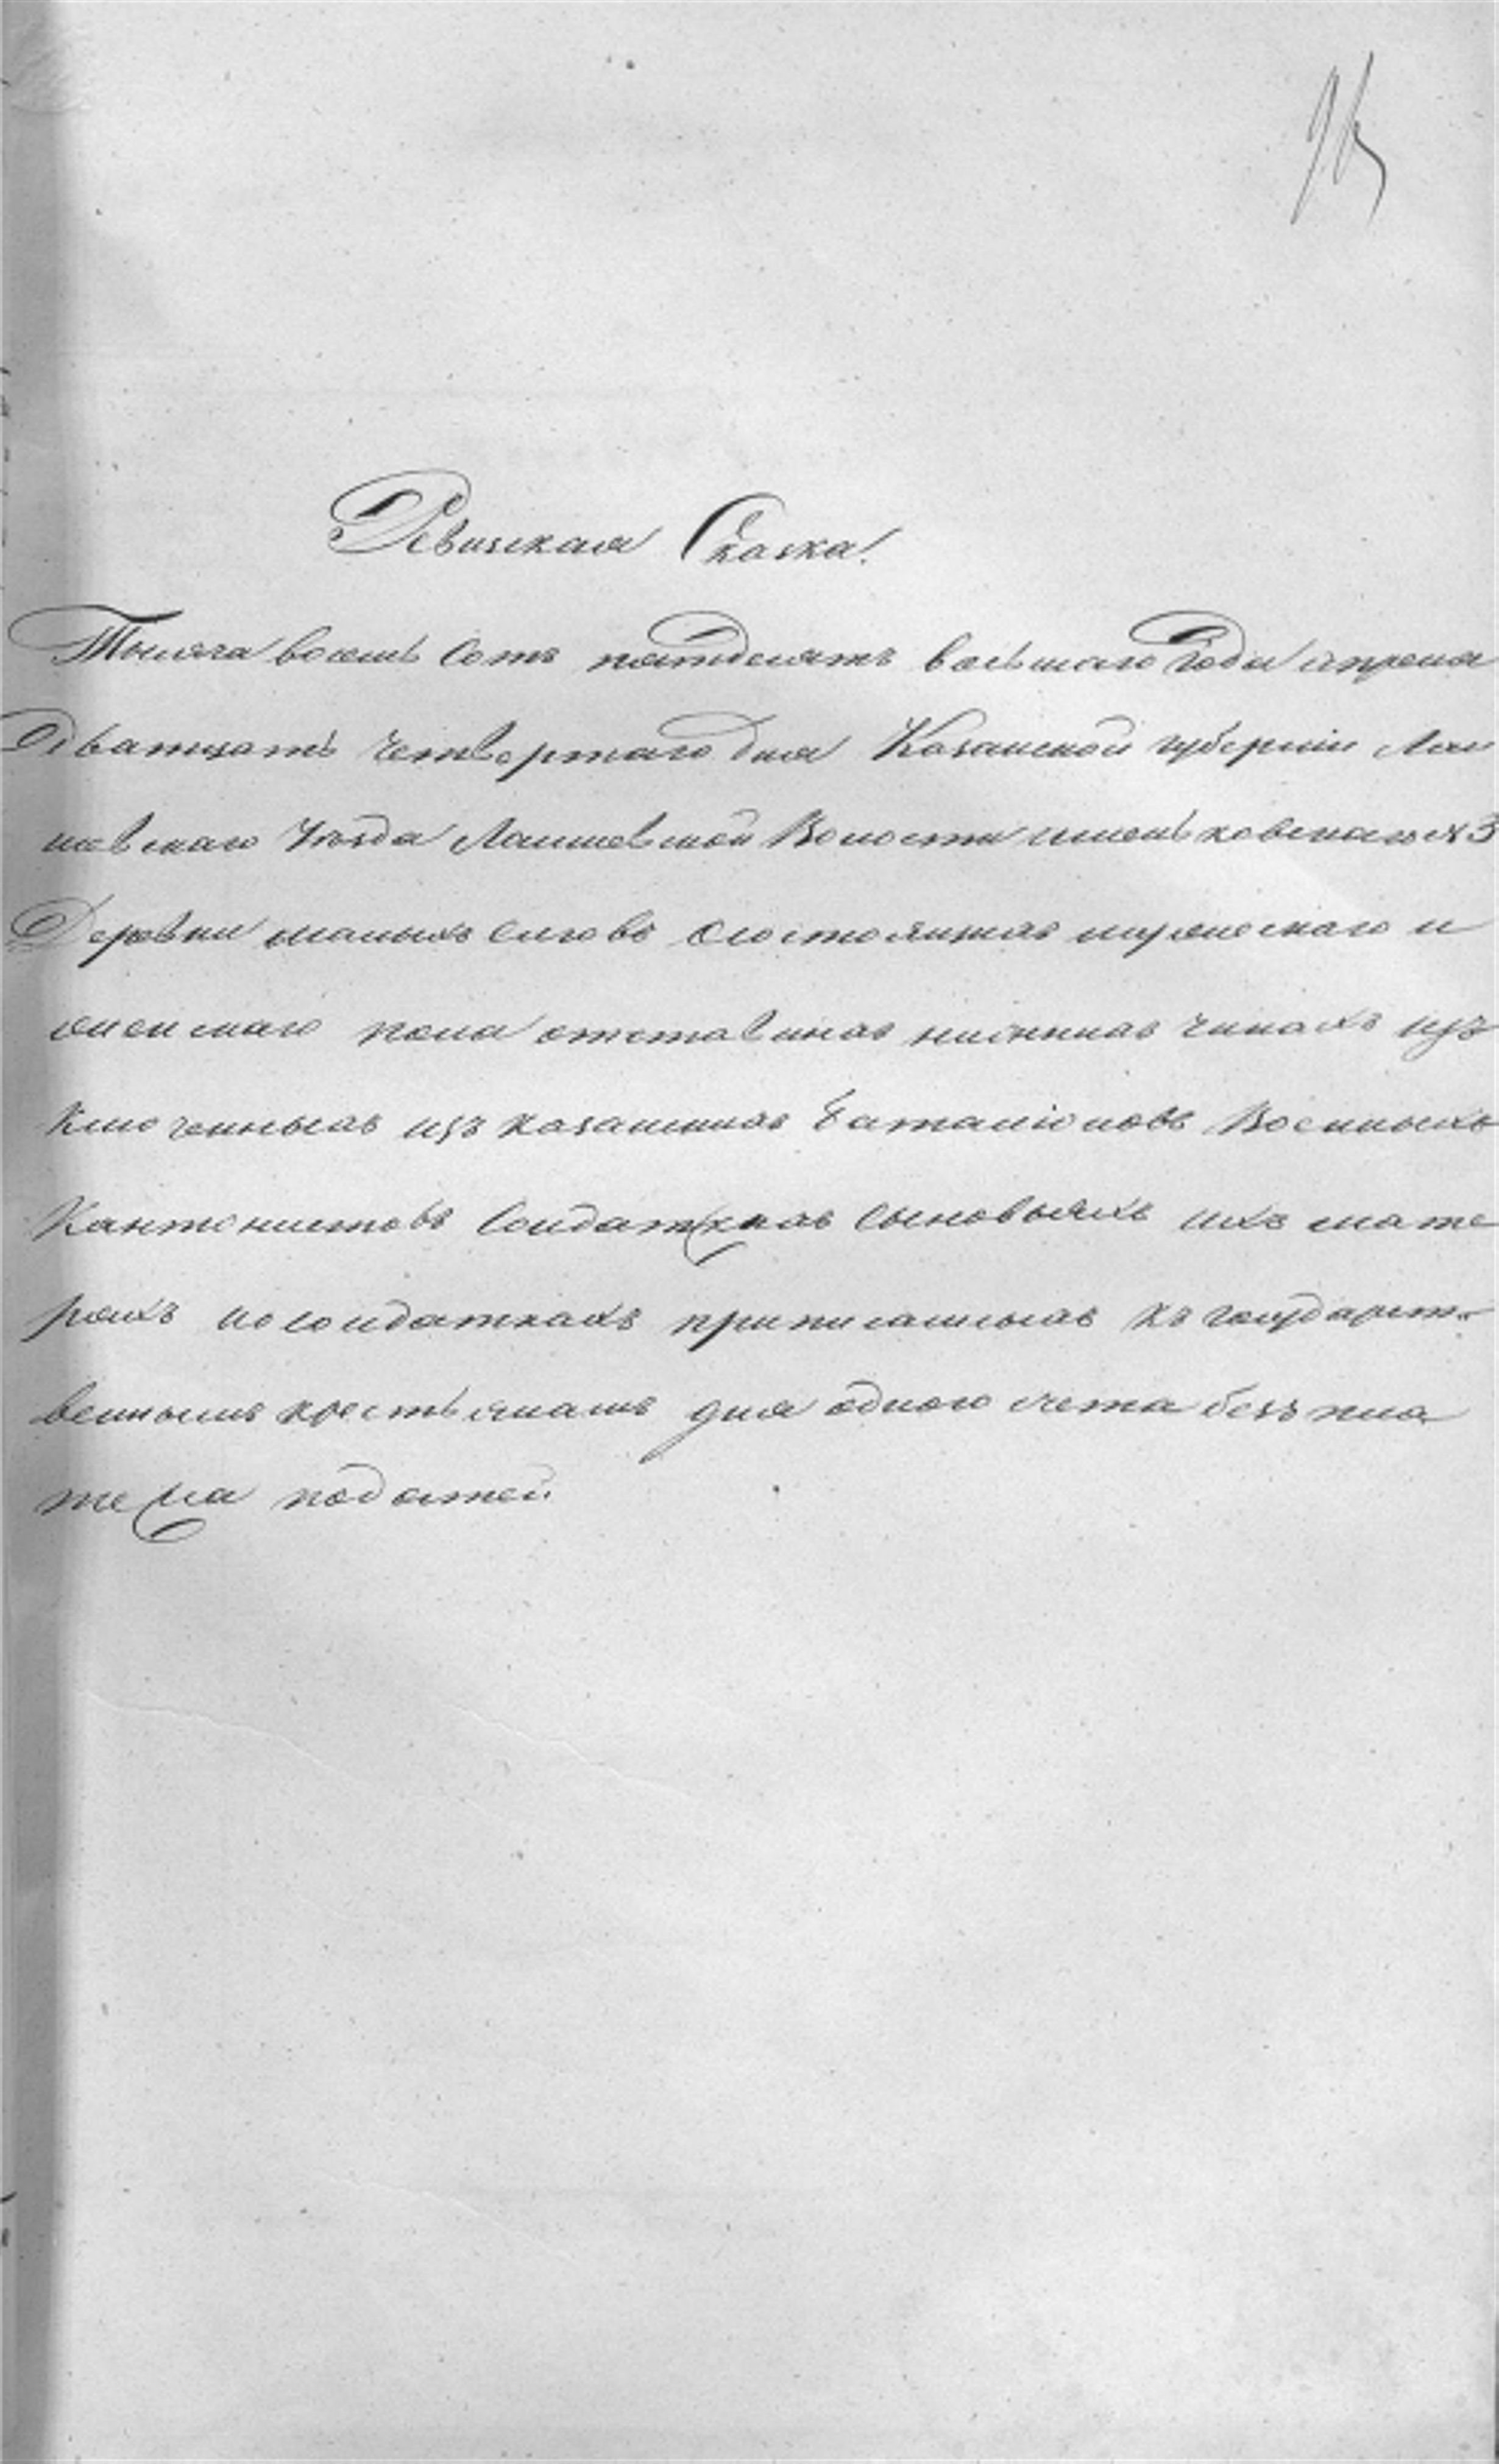 Ревизская Сказка.
Тысяча восемь сотъ пятдесятъ восьмаго года апреля
Дватцать четвертаго дня Казанской губерніи Лаи
шевскаго Уѣзда Лаишевской Волости именьковскаго
Деревни малыхъ состоящихъ мужескаго и
женскаго пола отставныхъ нижнихъ чинахъ из
ключенныхъ изъ казанскихъ баталіоновъ Военныхъ
Кантонистовъ Солдатскихъ сыновьяхъ ихъ мате
ряхъ и солдаткахъ приписанныхъ къ государст
веннымъ крестьянамъ для одного счета безъ пла
тежа податей.